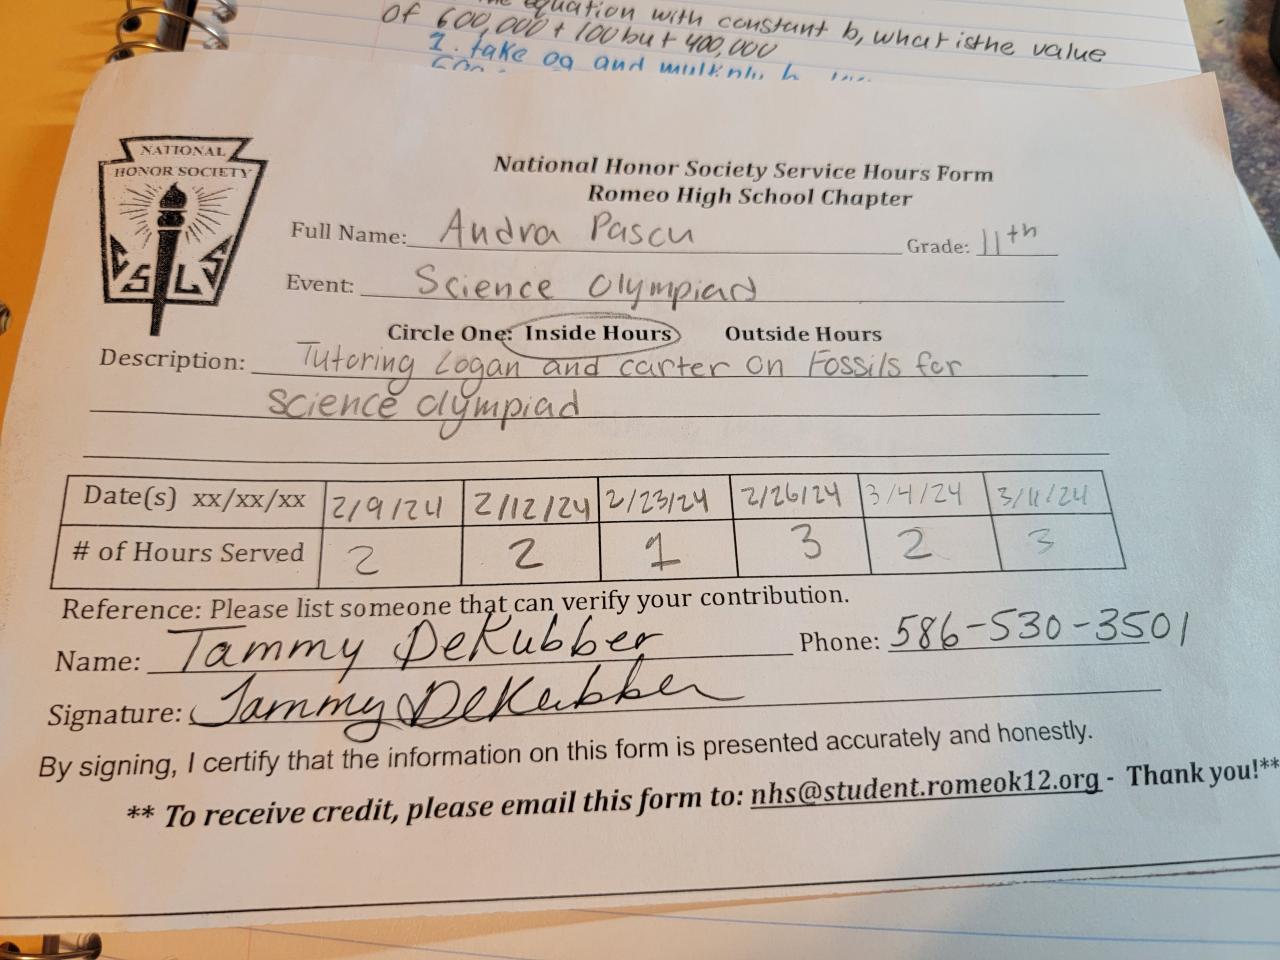 equation with constant b, what is the value
of 600,000 + 100 but 400,000
1. take 09 and multiply b
NATIONAL
HONOR SOCIETY
C S L S
National Honor Society Service Hours Form
Romeo High School Chapter
Full Name: Andra Pascu Grade: 11th
Event: Science Olympiad
Circle One: Inside Hours Outside Hours
Description: Tutoring Logan and carter on Fossils for
Science Olympiad
Date(s) xx/xx/xx 2/9/24 2/12/24 2/23/24 2/26/24 3/4/24 3/11/24
# of Hours Served 2 2 1 3 2 3
Reference: Please list someone that can verify your contribution.
Name: Tammy DeKubber Phone: 586-530-3501
Signature: Tammy DeKubber
By signing, I certify that the information on this form is presented accurately and honestly.
** To receive credit, please email this form to: nhs@student.romeok12.org - Thank you!**